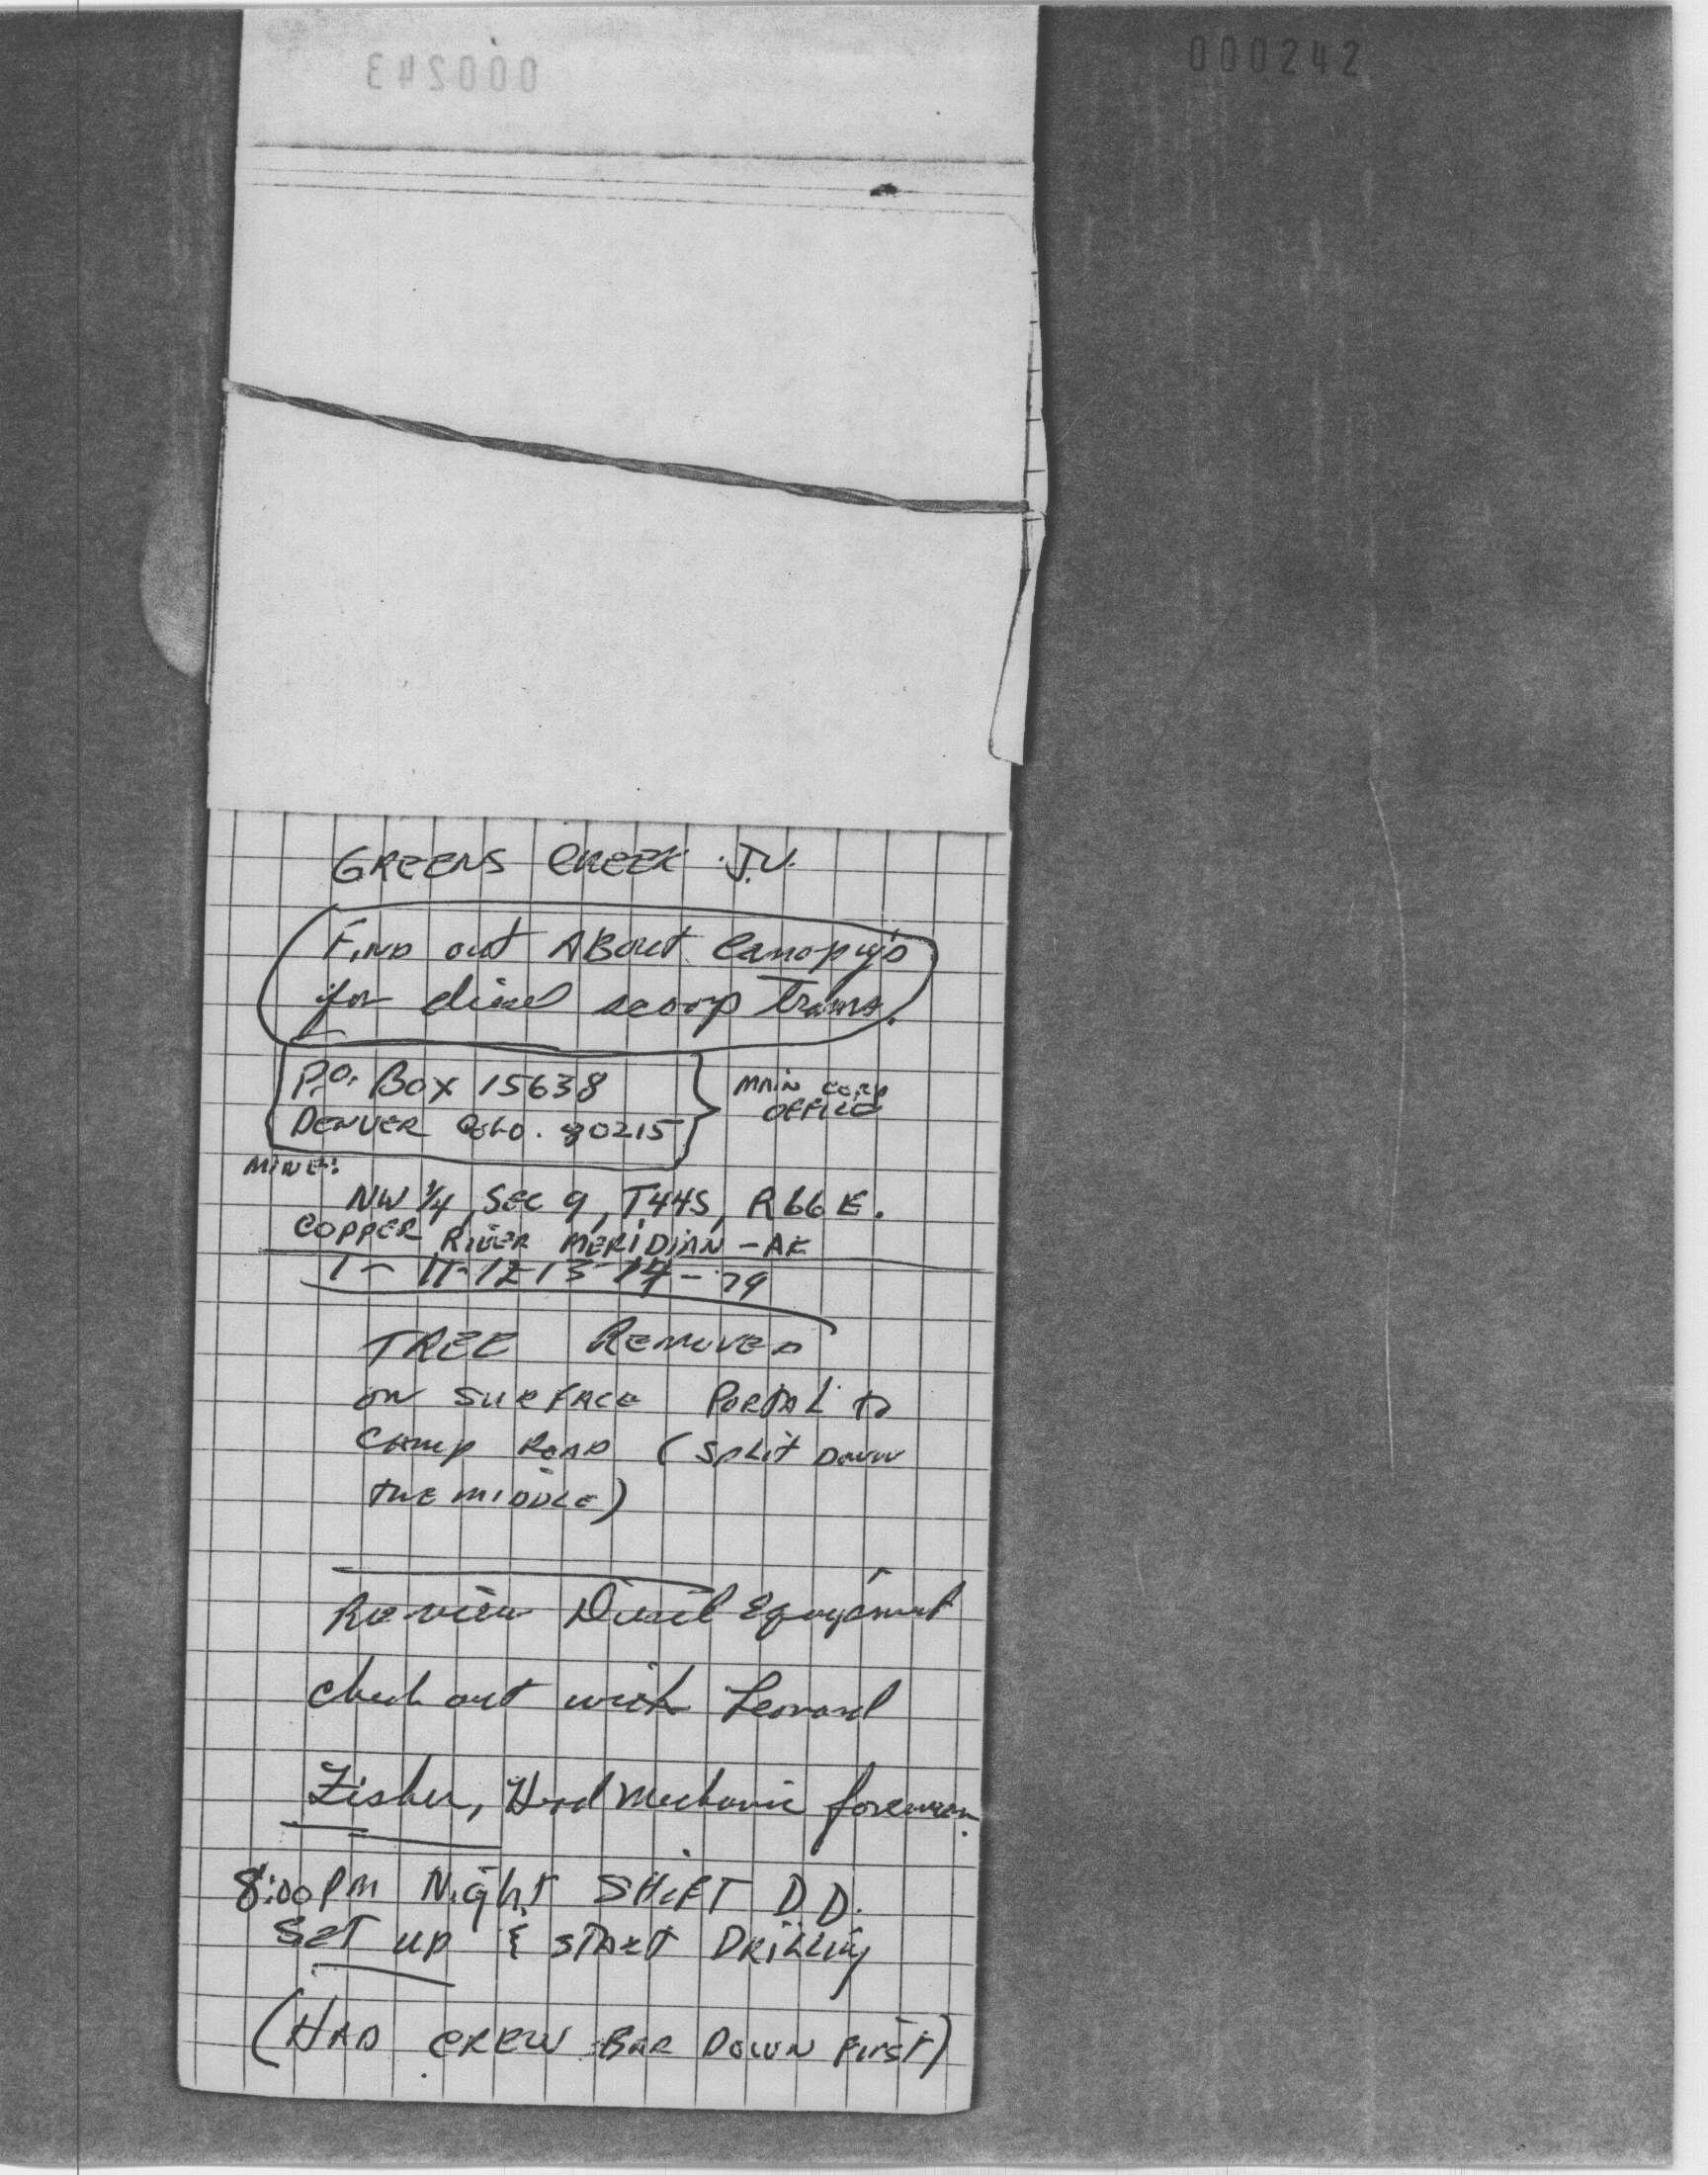 000242
000243
GREENS CREEK J.V.
Find out ABout Canopy's
for diesel scoop Trams.
P.O. Box 15638
DENVER COLO. 80215
MAIN CORP
OFFICE
MINE:
NW 1/4, SEC 9, T44S, R66E.
COPPER RIVER MERIDIAN - AK
1 - 11-12 13 14 - 79
TREE REMOVED
ON SURFACE PORTAL to
CAMP ROAD (SPLIT DOWN
THE MIDDLE)
Review Diesel Equipment
check out with Leonard
Fisher, Head Mechanic foreman.
8:00 PM Night SHIFT D.D.
SET UP & START DRILLING
(HAD CREW BAR DOWN FIRST)